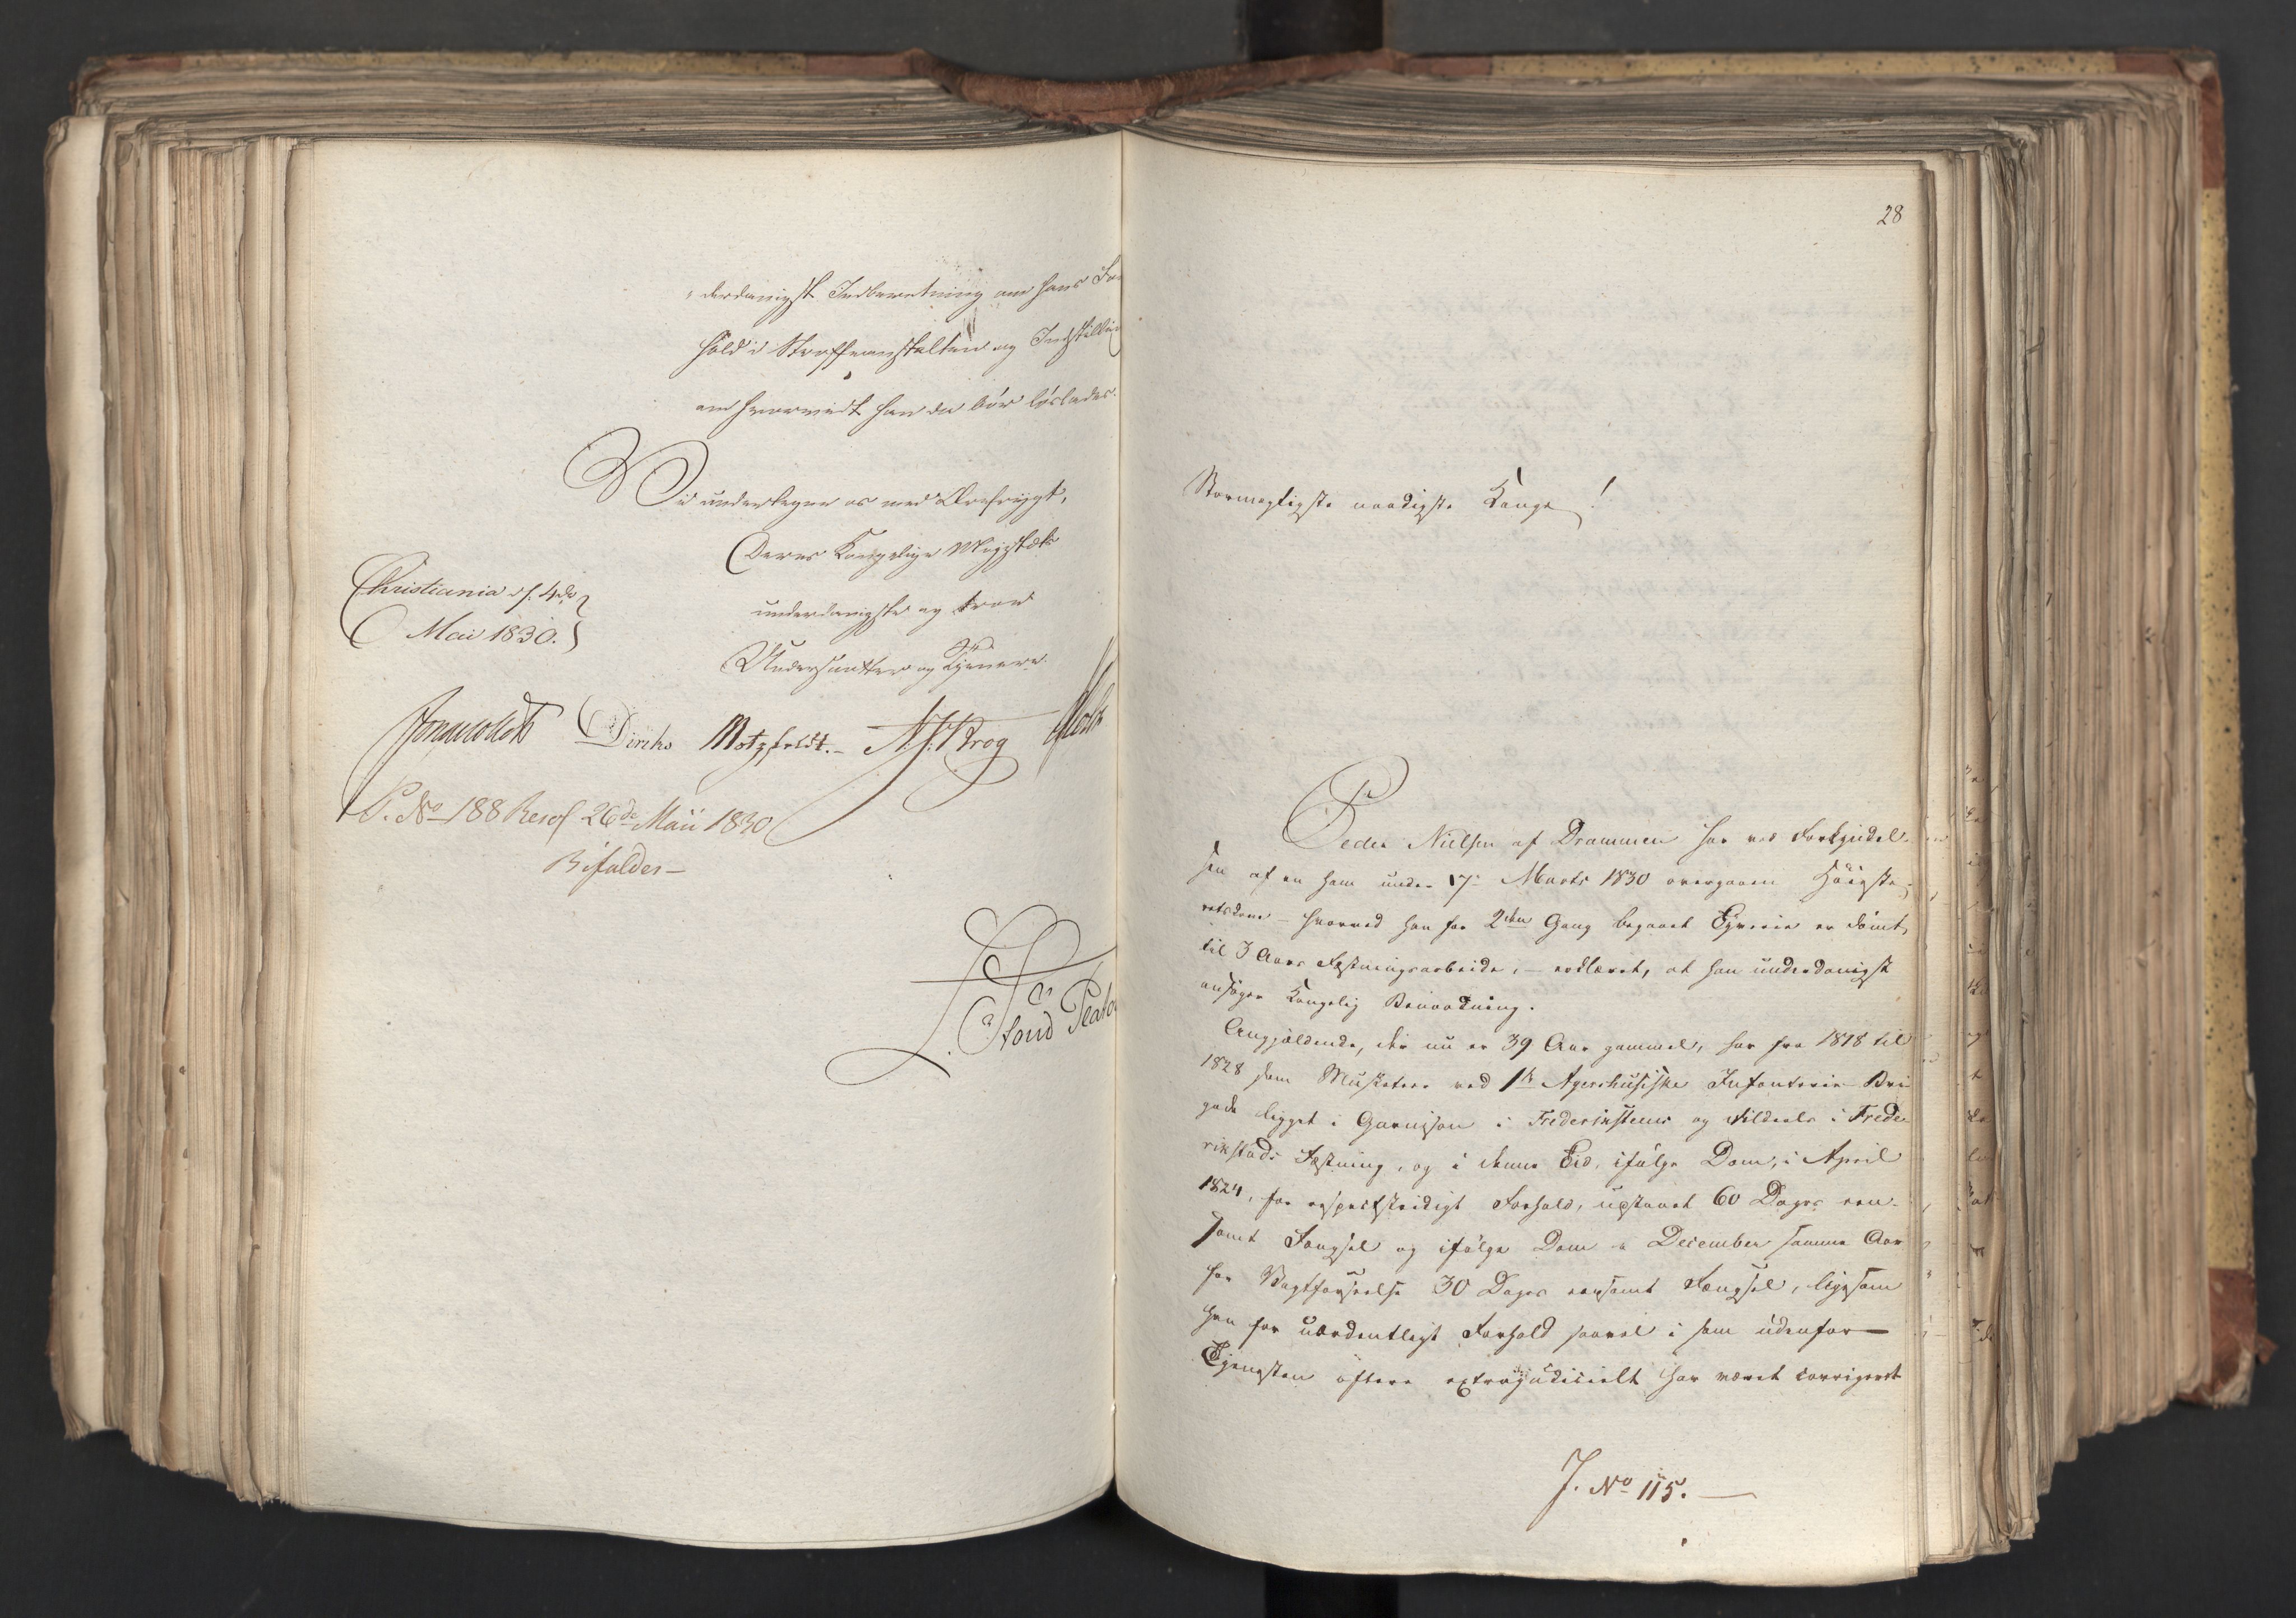 derdanigst Indberetning om hans For
hold i Straffeanstalten og Indstilling
om hvorvidt han da bør løslades.
Vi undertegne os med Ærefrygt,
Deres Kongelige Majestæts
underdanigste og troe
Undersaatter og Tjenere.
Christiania d. 4de
Mai 1830.
Diriks Motzfeldt.
P. No 188 Resol 26de Maii 1830
Bifaldes
28
Stormægtigste naadigste Konge!
Peder Nielsen af Drammen har ved Forkyndel-
sen af en ham under 17 Marts 1830 overgaaen Høieste-
retsdom – hvorved han for 2den Gang begaaet Tyverie er dømt
til 3 Aars Fæstningsarbeide, – erklæret, at han underdanigst
ansøger Kongelig Benaadning.
Angjældende, der nu er 39 Aar gammel, har fra 1818 til
1828 som Musketeer ved 1ste Agershusiske Infanterie Bri
gade ligget i Garnison i Frederiksteens og tildeels i Frede
rikstads Fæstning, og i denne Tid, ifølge Dom, i April
1824, for respectstridigt Forhold, udstaaet 60 Dages een-
somt Fængsel og ifølge Dom i December samme Aar
for Vagtforseelse 30 Dages eensomt Fængsel, ligesom
han for uordentligt Forhold saavel i som udenfor
Tjenesten oftere extrajudicielt har været corrigeret
J. No 115.